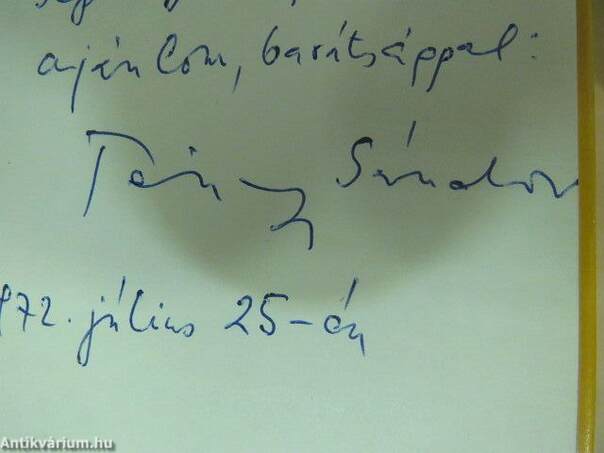 ajánlom, barátsággal:
Sándor
972. július 25-én
Antikvárium.hu